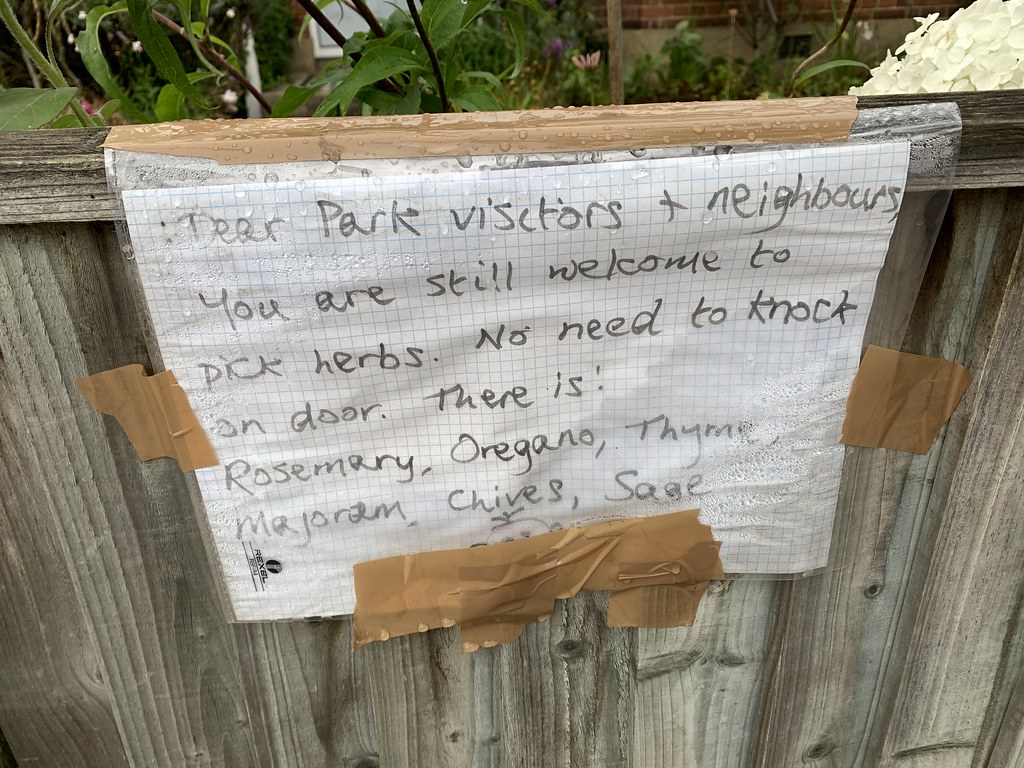 Dear Park visitors + neighbours,
You are still welcome to
pick herbs. No need to knock
on door. There is:
Rosemary, Oregano, Thyme,
Majoram, Chives, Sage
REXEL